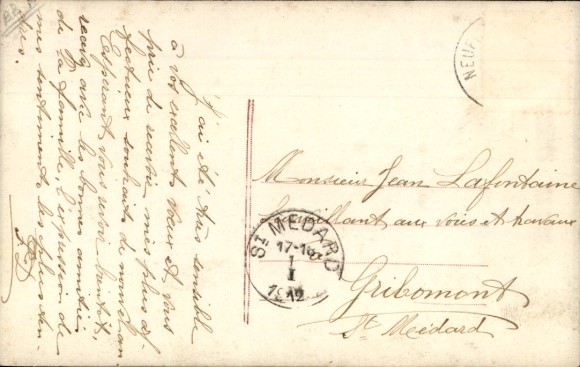 J'ai été très sensible
à vos excellents vœux et vous
prie de recevoir mes plus af-
fectueux souhaits de nouvel an
Espérant vous voir bientôt,
recevez avec les bonnes amitiés
de la famille, l'expression de
mes sentiments les plus
Monsieur Jean Lafontaine
Surveillant aux voies et travaux
Gribomont
St Médard
ST MEDARD
17-18
I
I
1912
NEUF